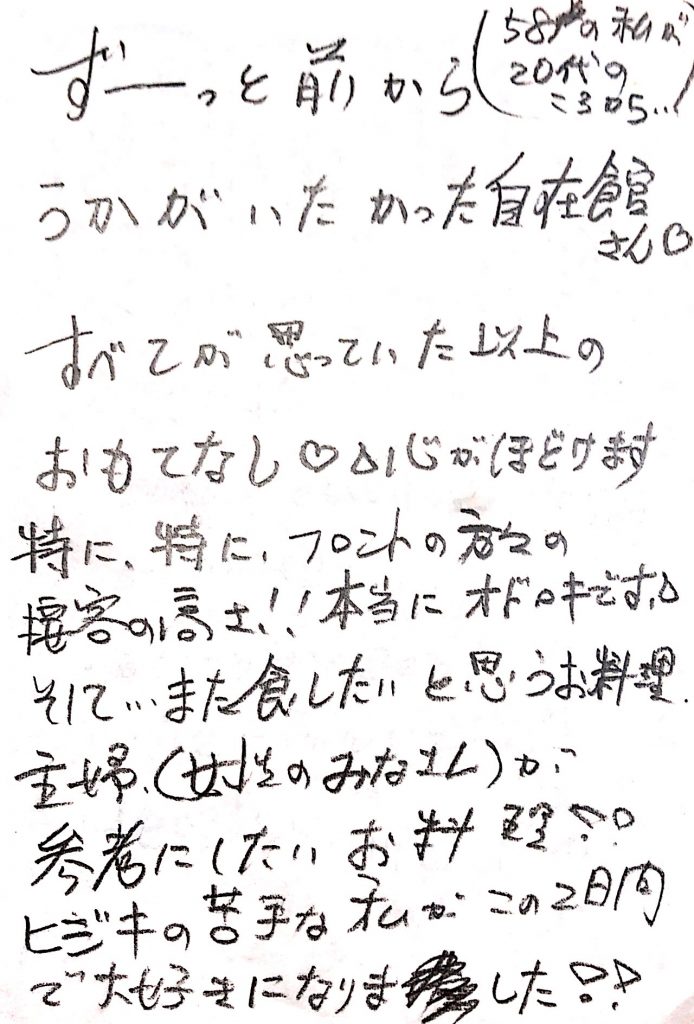 ずーっと前から(58才の私が
20代の
ころから…)
うかがいたかった自在館
さん♡
すべてが思っていた以上の
おもてなし♡心がほどけます
特に、特に、フロントの方々の
接客の高さ!!本当にオドロキです。
そして…また食したいと思うお料理。
主婦、(女性のみなさん)が
参考にしたいお料理!!
ヒジキの苦手な私がこの2日間
で大好きになりました!!